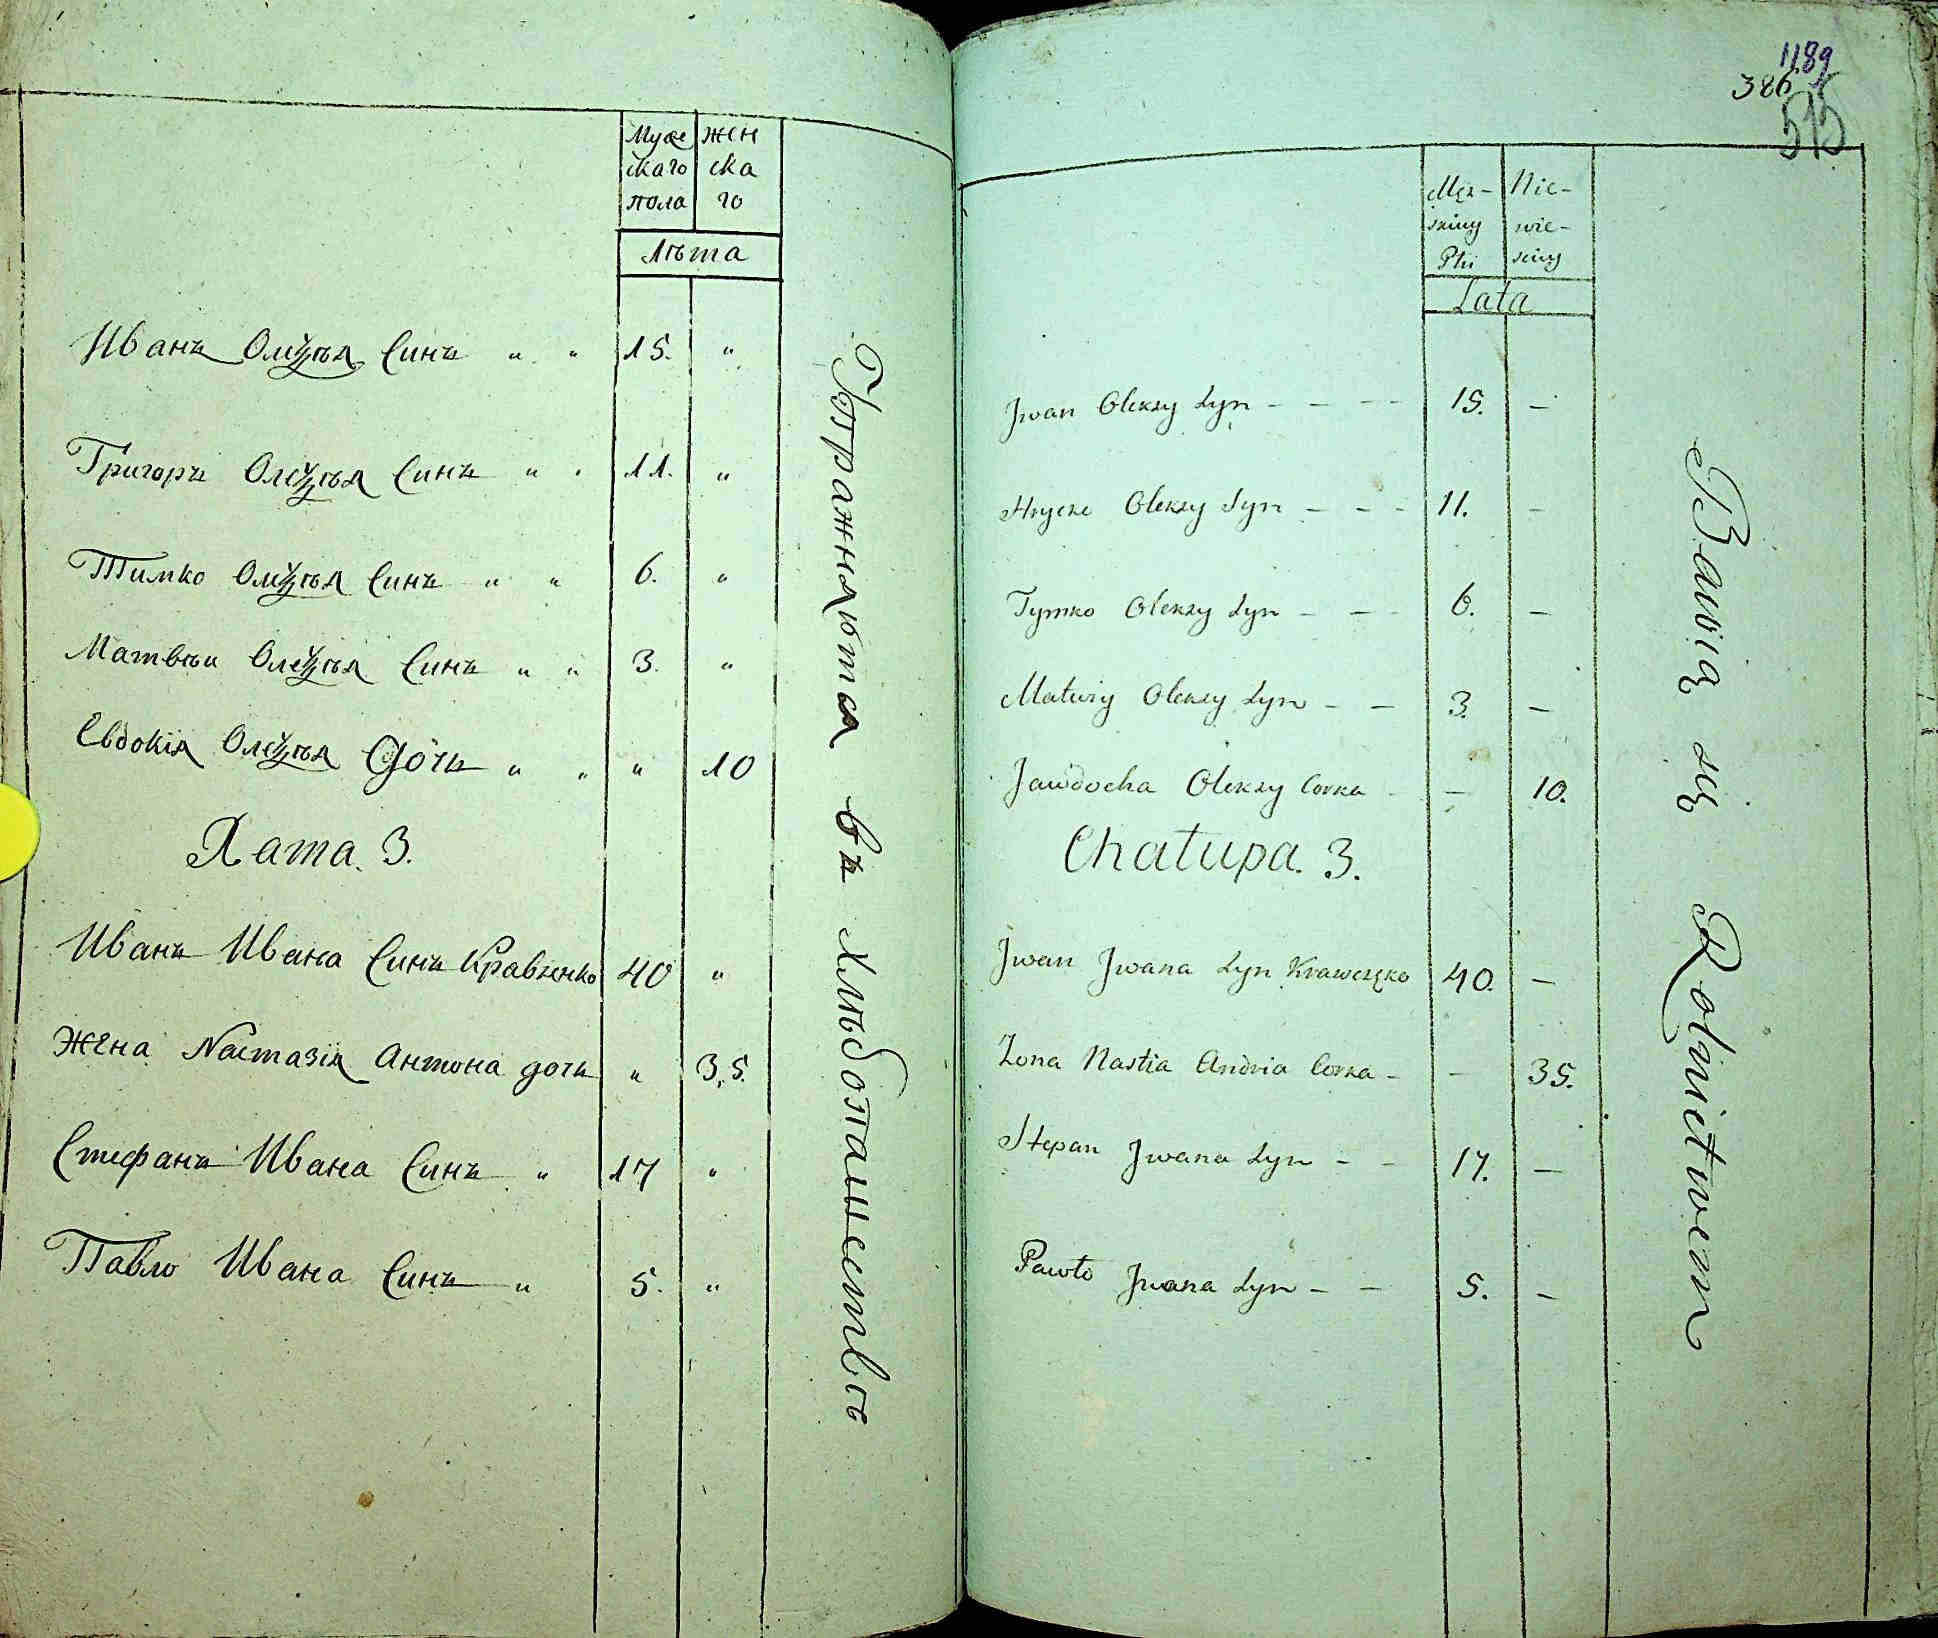 Муже жен
скаго ска
пола го
лѣта
Иванъ Олеѯѣя Синъ " " 15. "
Григоръ Олеѯѣя Синъ " " 11. "
Тимко Олеѯѣя Синъ " " 6. "
Матвѣи Олеѯѣя Синъ " " 3. "
Евдокія Олеѯѣя Дочъ " " " 10
Хата. 3.
Иванъ Ивана Синъ Кравченко 40 "
Жена Настазія Антона дочъ " 35.
Стефанъ Ивана Синъ " 17 "
Павло Ивана Синъ " 5. "
Упражняютса въ хлѣбопашествѣ
1189
386
515
Męz- Nie-
skiey wie-
Płci sciey
Lata
Jwan Olexsy Syn - - - - 15. -
Hrycko Olexsy Syn - - - 11. -
Tymko Olexsy Syn - - - 6. -
Matwiy Olexsy Syn - - 3. -
Jawdocha Olexsy Corka - - 10.
Chałupa. 3.
Jwan Jwana Syn Krawczęko 40. -
Zona Nastia Andria Corka - - 35.
Stepan Jwana Syn - - 17. -
Pawło Jwana Syn - - 5. -
Bawią się Rolnictwem